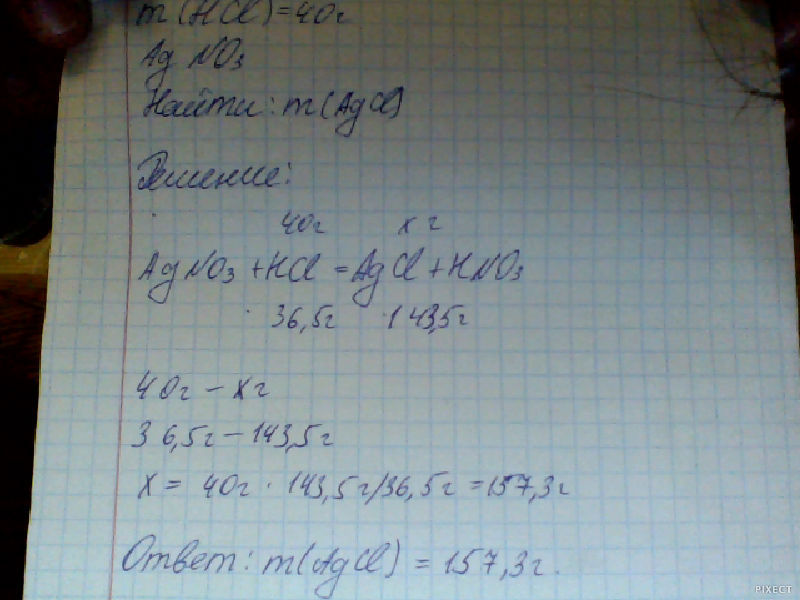 m(HCl)=40г
AgNO3
Найти: m(AgCl)
Решение:
40г х г
AgNO3 + HCl = AgCl + HNO3
36,5г 143,5г
40г – хг
36,5г – 143,5г
х = 40г · 143,5г/36,5г = 157,3г
Ответ: m(AgCl) = 157,3г.
PIXECT